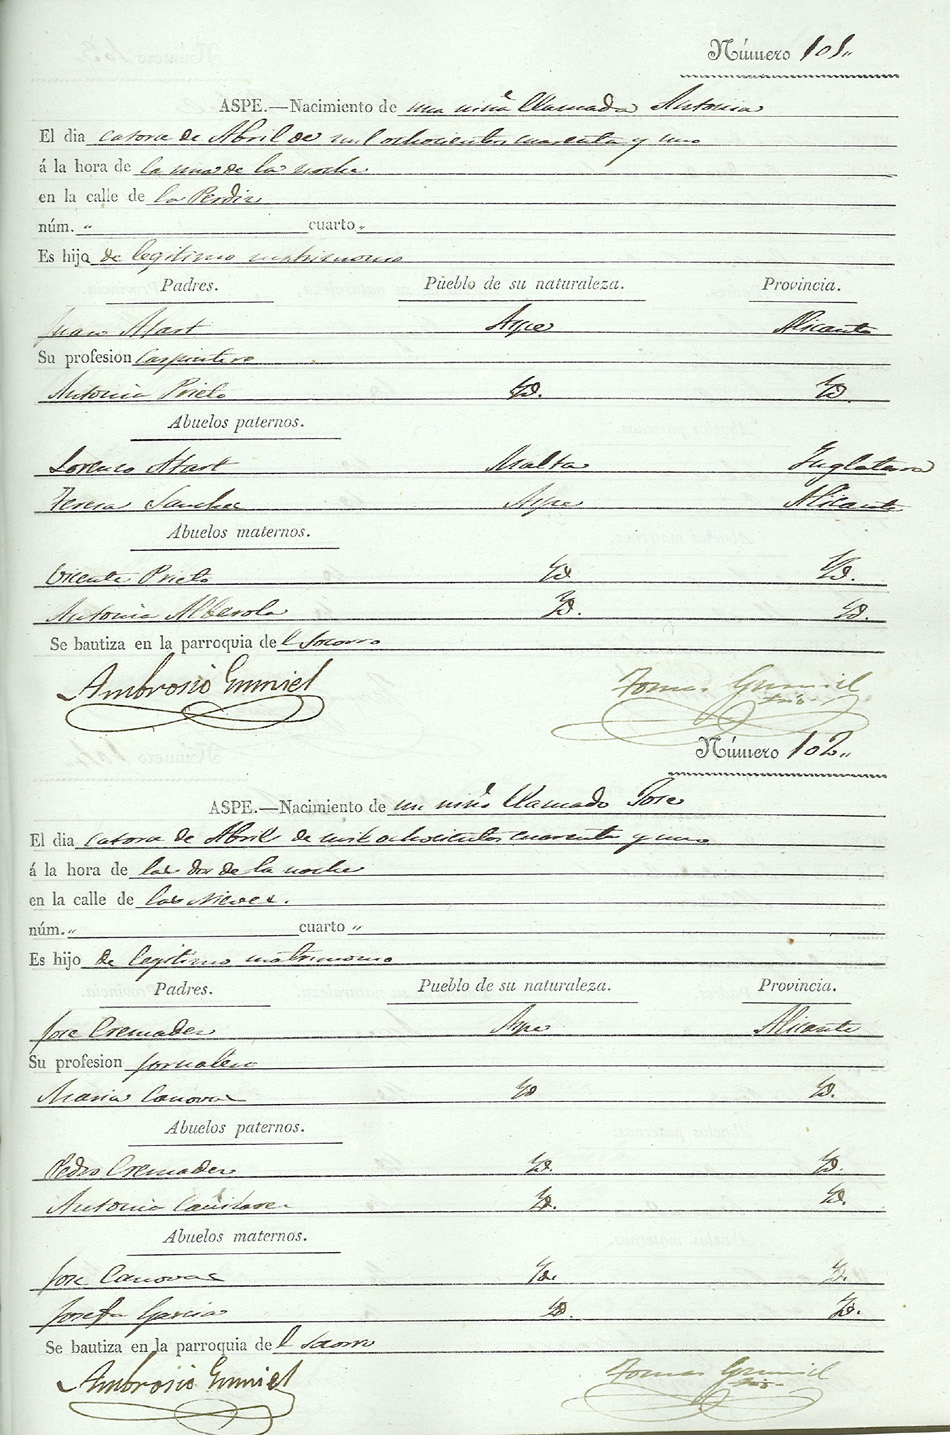 Número 101„
ASPE.—Nacimiento de una niña llamada Antonia
El dia catorce de Abril de mil ochocientos cuarenta y uno
á la hora de la una de la noche
en la calle de la Perdiz
núm. „ cuarto „
Es hijo de legitimo matrimonio
Padres. Pueblo de su naturaleza. Provincia.
Juan Atart Aspe Alicante
Su profesion Carpintero
Antonia Prieto Yd. Yd.
Abuelos paternos.
Lorenzo Atart Malta Inglaterra
Teresa Sanchez Aspe Alicante
Abuelos maternos.
Vicente Prieto Yd. Yd.
Antonia Alberola Yd. Yd.
Se bautiza en la parroquia del Socorro
Ambrosio Gumiel Tomas Gumiel
Número 102„
ASPE.—Nacimiento de un niño llamado Jose
El dia catorce de Abril de mil ochocientos cuarenta y uno
á la hora de las dos de la noche
en la calle de las Nieves.
núm. „ cuarto „
Es hijo de legitimo matrimonio
Padres. Pueblo de su naturaleza. Provincia.
Jose Cremades Aspe Alicante
Su profesion jornalero
Maria Canovas Yd Yd.
Abuelos paternos.
Pedro Cremades Yd. Yd.
Antonia Yd. Yd.
Abuelos maternos.
Jose Canovas Yd. Yd.
Josefa Garcia Yd. Yd.
Se bautiza en la parroquia del Socorro
Ambrosio Gumiel Tomas Gumiel